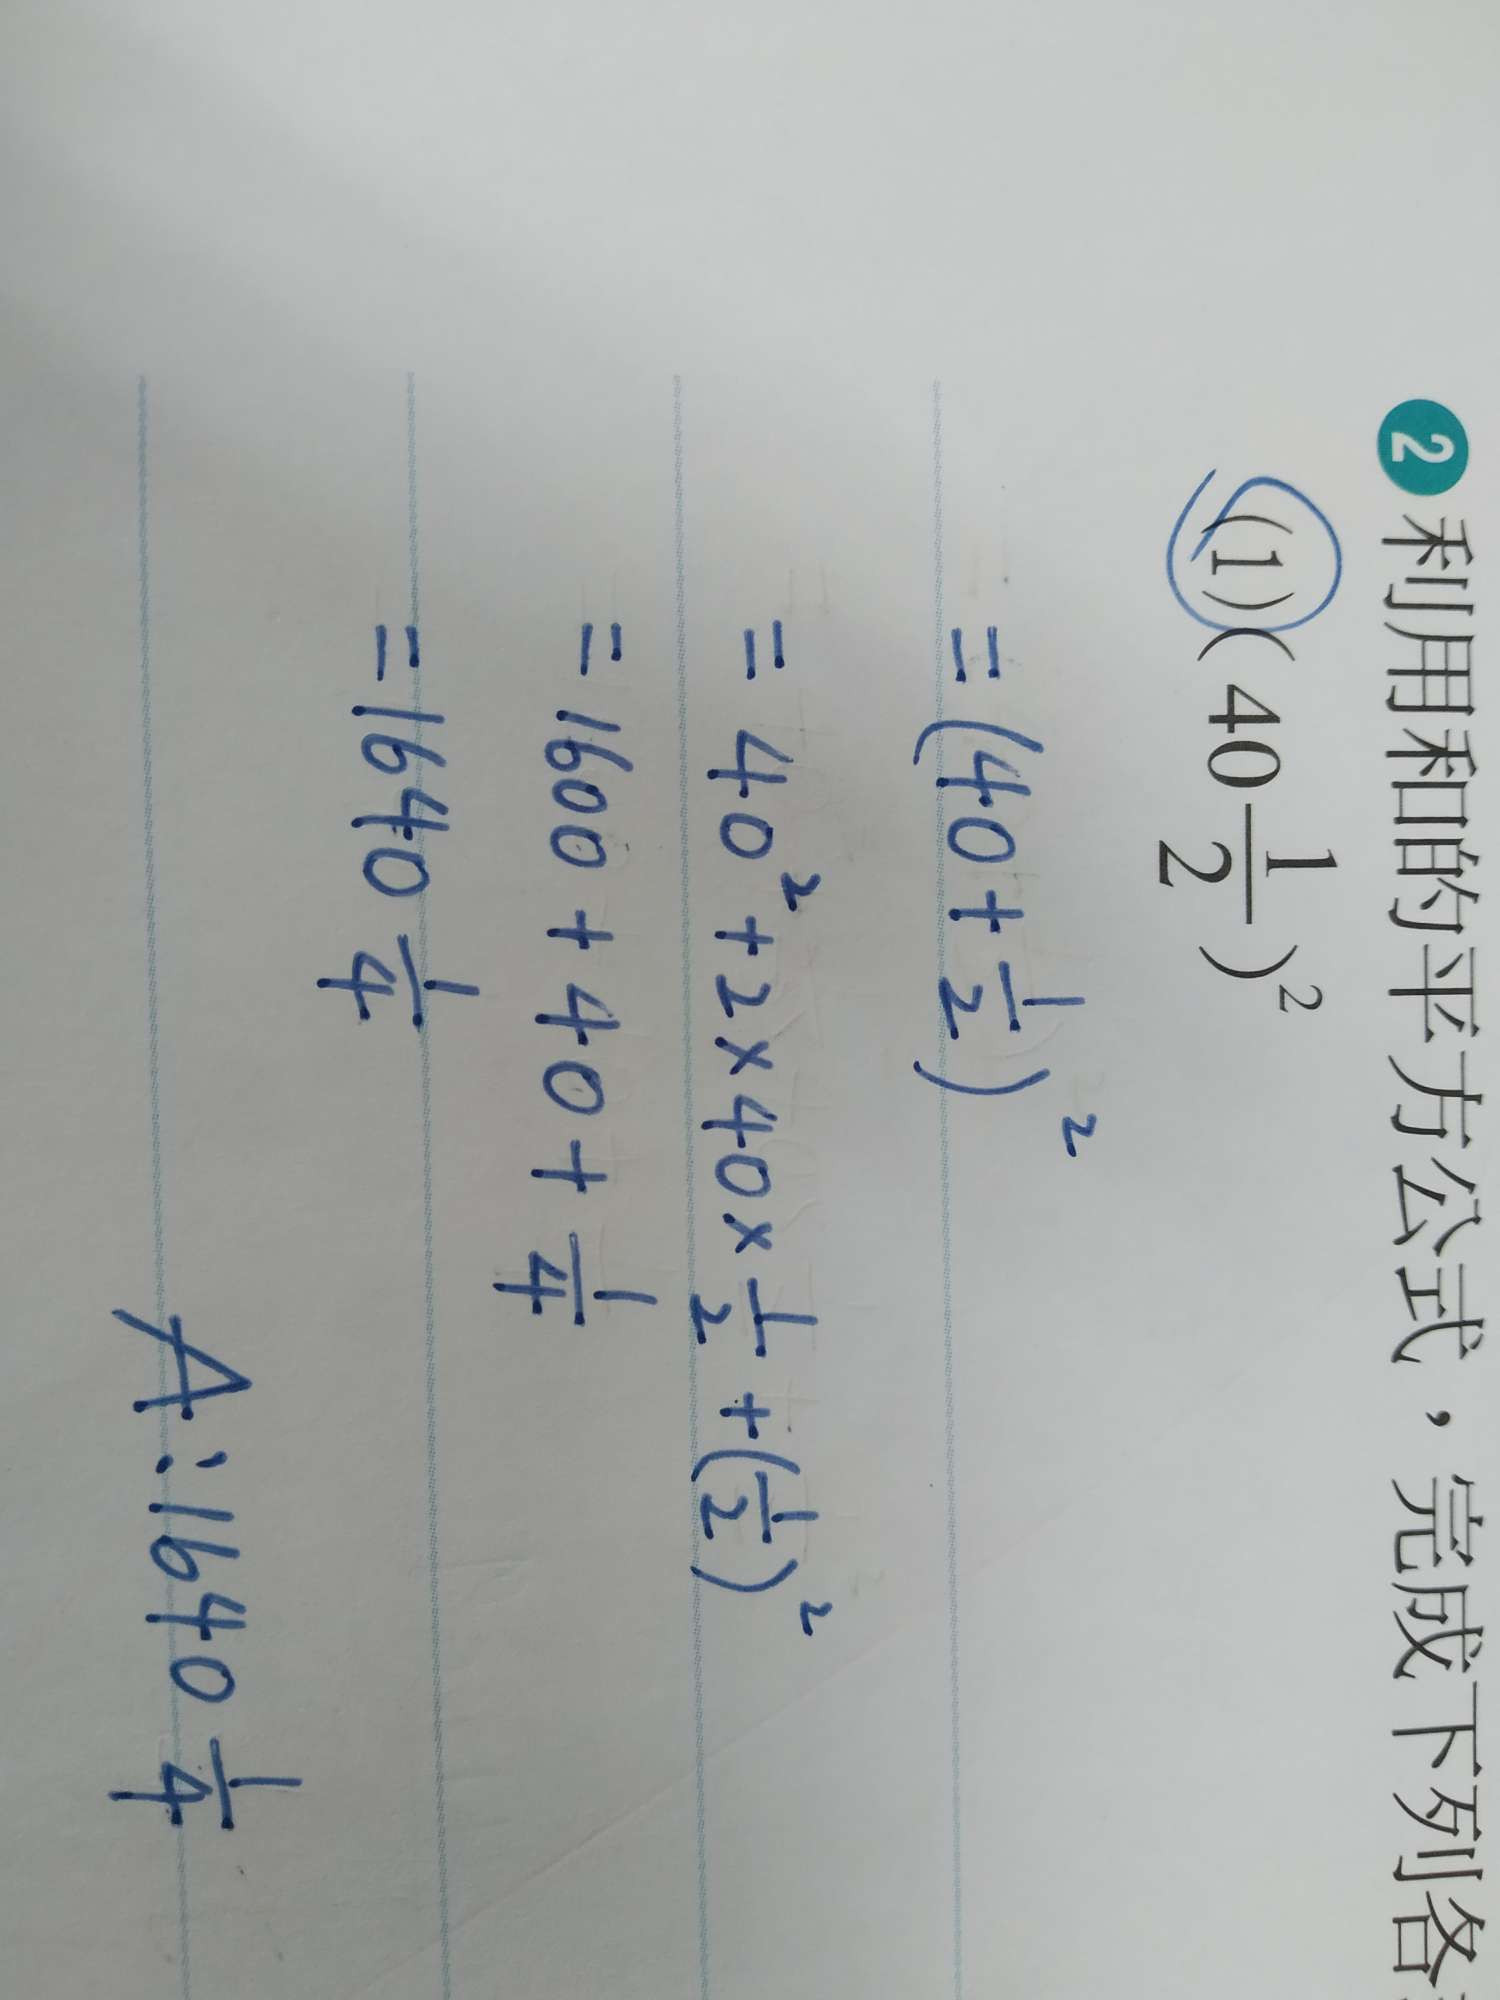 2 利用和的平方公式，完成下列各
(1)(40 1/2)²
=(40+1/2)²
=40²+2×40×1/2+(1/2)²
=1600+40+1/4
=1640 1/4
A:1640 1/4